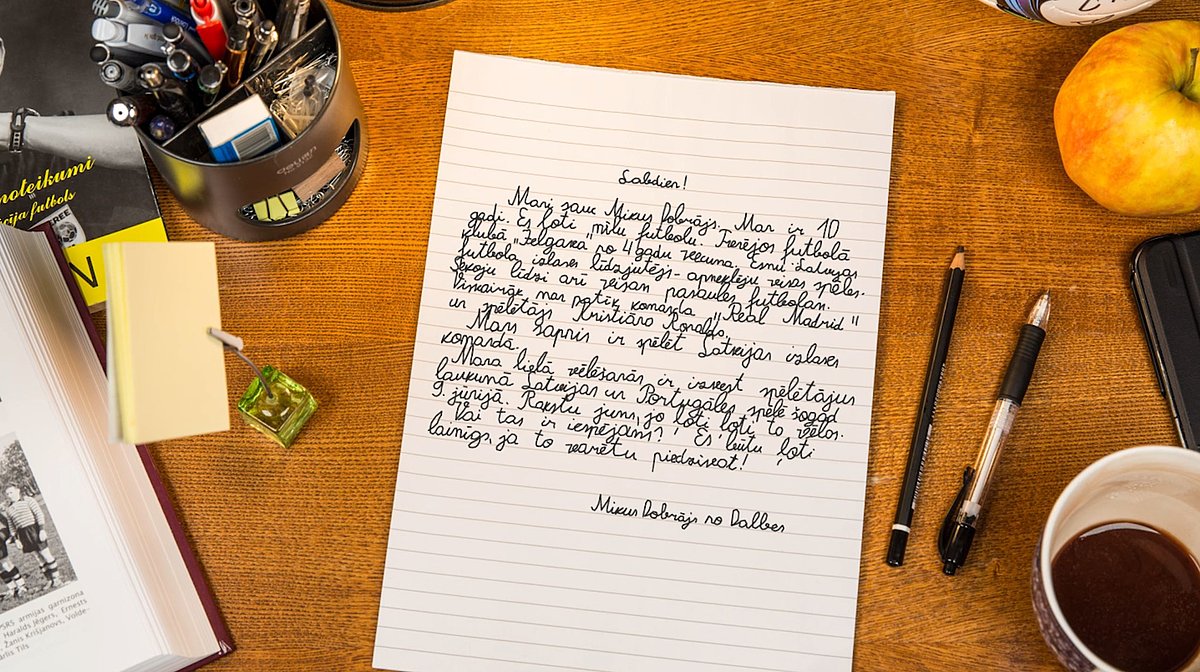 noteikumi
cija futbols
FREE
N
deuan
Labdien!
Mani sauc Mikus Dobrājs. Man ir 10
gadi. Es ļoti mīlu futbolu. Trenējos futbolā
klubā "Jelgava" no 4 gadu vecuma. Esmu Latvijas
futbola izlases līdzjutējs - apmeklēju visas spēles.
Sekoju līdzi arī visam pasaules futbolam.
Visvairāk man patīk komanda "Real Madrid"
un spēlētājs Kristiāno Ronaldo.
Mans sapnis ir spēlēt Latvijas izlases
komandā.
Mana lielā vēlēšanās ir izvest spēlētājus
laukumā Latvijas un Portugāles spēlē šogad
9. jūnijā. Rakstu jums, jo ļoti, ļoti to vēlos.
Vai tas ir iespējams? Es būtu ļoti
laimīgs, ja to varētu piedzīvot!
Mikus Dobrājs no Dalbes
PSRS armijas garnizona
Haralds Jēgers, Ernests
Žanis Krišjanovs, Volde-
arlis Tils